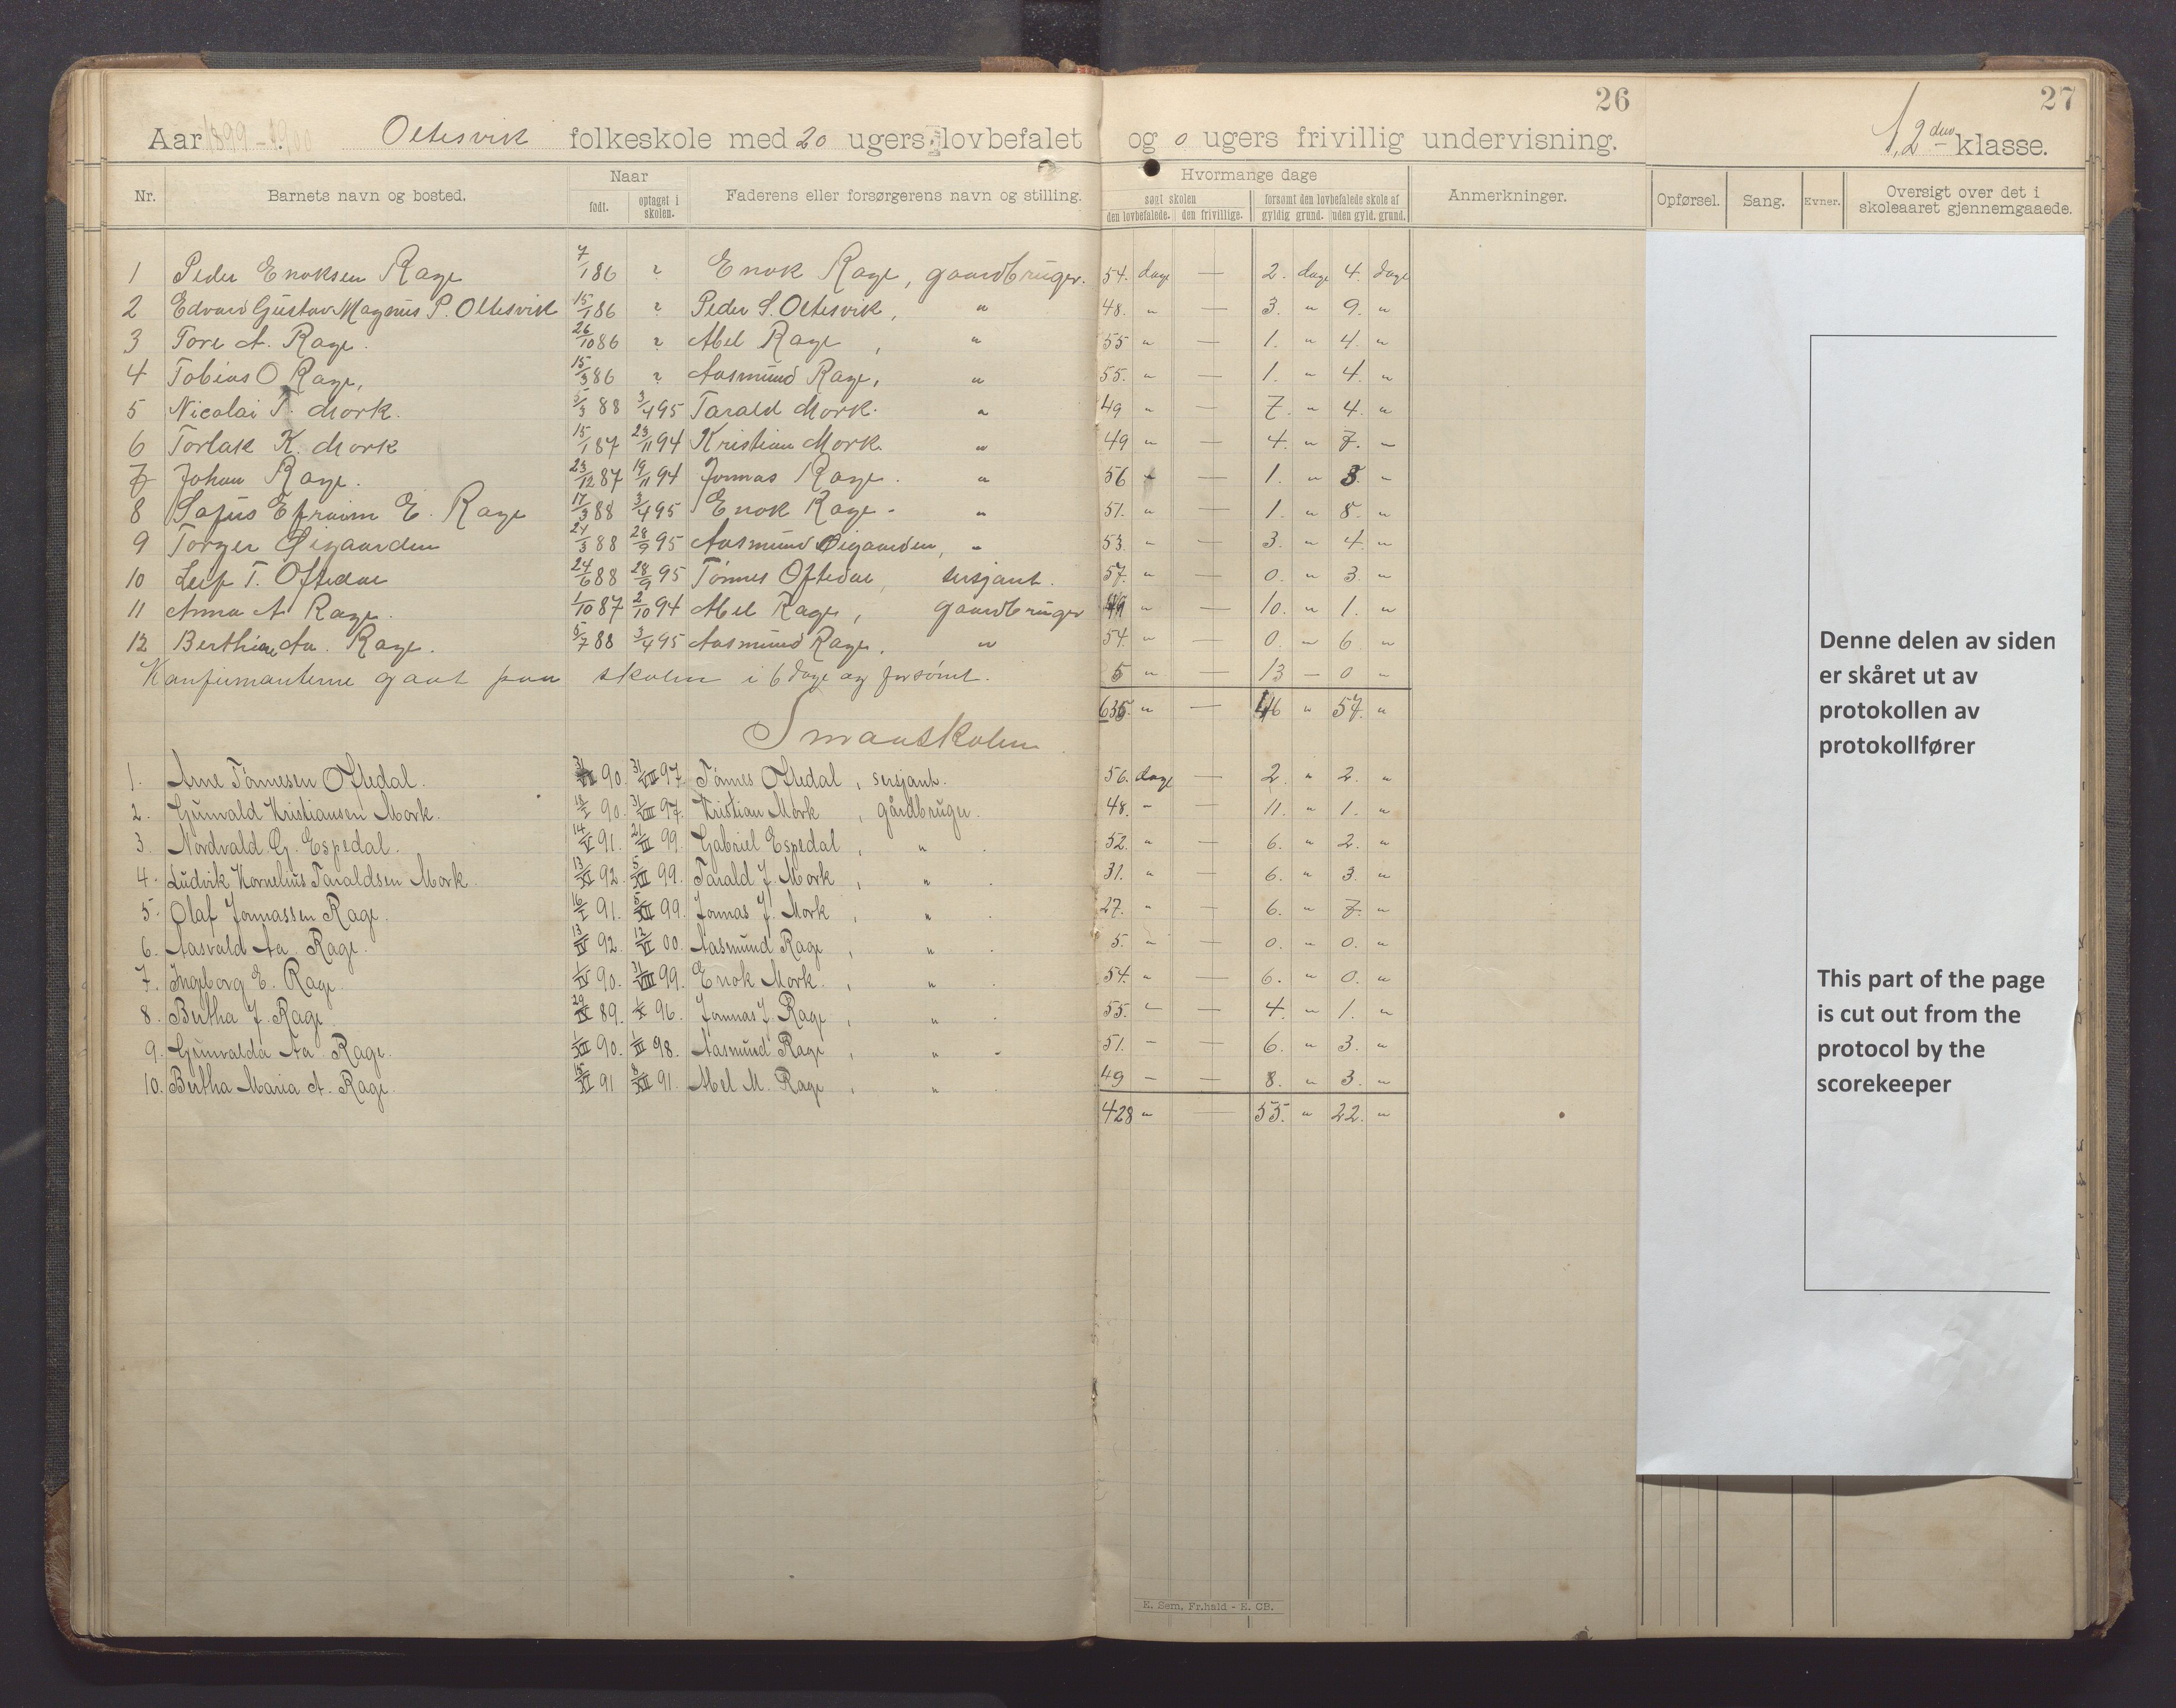 26
27
Aar 1899-1900 Oltesvik folkeskole med 20 ugers lovbefalet og 0 ugers frivillig undervisning. 1, 2den klasse.
Nr. Barnets navn og bosted. Naar født. optaget i skolen. Faderens eller forsørgerens navn og stilling. Hvormange dage søgt skolen den lovbefalede. den frivillige. forsømt den lovbefalede skole af gyldig grund. uden gyld. grund. Anmerkninger. Opførsel. Sang. Evner. Oversigt over det i skoleaaret gjennemgaaede.
1 Peder Enoksen Rage 7/1 86 ? Enok Rage, gaardbruger. 54. dage — 2. dage 4. dage
2 Edvard Gustav Magnus P. Oltesvik 15/1 86 ? Peder S. Oltesvik, " 48. " — 3. " 9. "
3 Tore A. Rage. 26/10 86 ? Abel Rage, " 55 " — 1. " 4. "
4 Tobias O Rage, 15/3 86 ? Aasmund Rage, " 55. " — 1. " 4. "
5 Nicolai T. Mork. 5/3 88 3/4 95 Tarald Mork. " 49 " — 7. " 4. "
6 Torlak K. Mork 15/1 87 23/11 94 Kristian Mork. " 49 " — 4. " 7. "
7 Johan Rage. 23/12 87 19/11 94 Jonnas Rage. " 56 " — 1. " 3. "
8 Sofus Efraim E. Rage 17/3 88 3/4 95 Enok Rage - " 51. " — 1. " 8. "
9 Torger Øigaarden 24/3 88 28/9 95 Aasmund Øigaarden, " 53. " — 3. " 4. "
10 Leif T. Oftedal 24/6 88 28/9 95 Tønnes Oftedal, sersjant. 57. " — 0. " 3. "
11 Anna A Rage. 1/10 87 2/10 94 Abel Rage, gaardbruger 49 " — 10. " 1. "
12 Berthine Aa. Rage. 5/7 88 3/4 95 Aasmund Rage. " 54. " — 0. " 6. "
Konfirmanterne gaat paa skolen i 6 dage og forsømt. 5 " — 13 — 0 "
636. " — 46 " 57. "
Smaaskolen
1. Arne Tønnesen Oftedal. 90. 31/VIII 97. Tønnes Oftedal, sersjant. 56. dage — 2. " 2. "
2. Gunvald Kristiansen Mork. 18/I 90. 31/VIII 97. Kristian Mork, gårdbruger. 48. " — 11. " 1. "
3. Nordvald G. Espedal. 14/V 91. 21/III 99. Gabriel Espedal, " 52. " — 6. " 2. "
4. Ludvik Kornelius Taraldsen Mork. 13/XI 92. 5/XII 99. Tarald J. Mork, " 31. " — 6. " 3. "
5. Olaf Jonnassen Rage. 16/I 91. 5/XII 99. Jonnas J. Mork, " 27. " — 6. " 7. "
6. Aasvald Aa. Rage. 13/IV 92. 12/VI 00. Aasmund Rage, " 5. " — 0. " 0. "
7. Ingeborg E. Rage. 1/IV 90. 31/VIII 99. Enok Mork., " 54. " — 6. " 0. "
8. Bertha J. Rage. 29/IX 89. 1/X 96. Jonnas J. Rage, " 55. " — 4. " 1. "
9. Gunvalda Aa. Rage. 1/XII 90. 1/III 98. Aasmund Rage, " 51. " — 6. " 3. "
10. Bertha Maria A. Rage. 15/XI 91 8/XII 91. Abel M. Rage, " 49 " — 8. " 3. "
428 " — 55. " 22. "
Denne delen av siden
er skåret ut av
protokollen av
protokollfører
This part of the page
is cut out from the
protocol by the
scorekeeper
E. Sem, Fr.hald - E. CB.